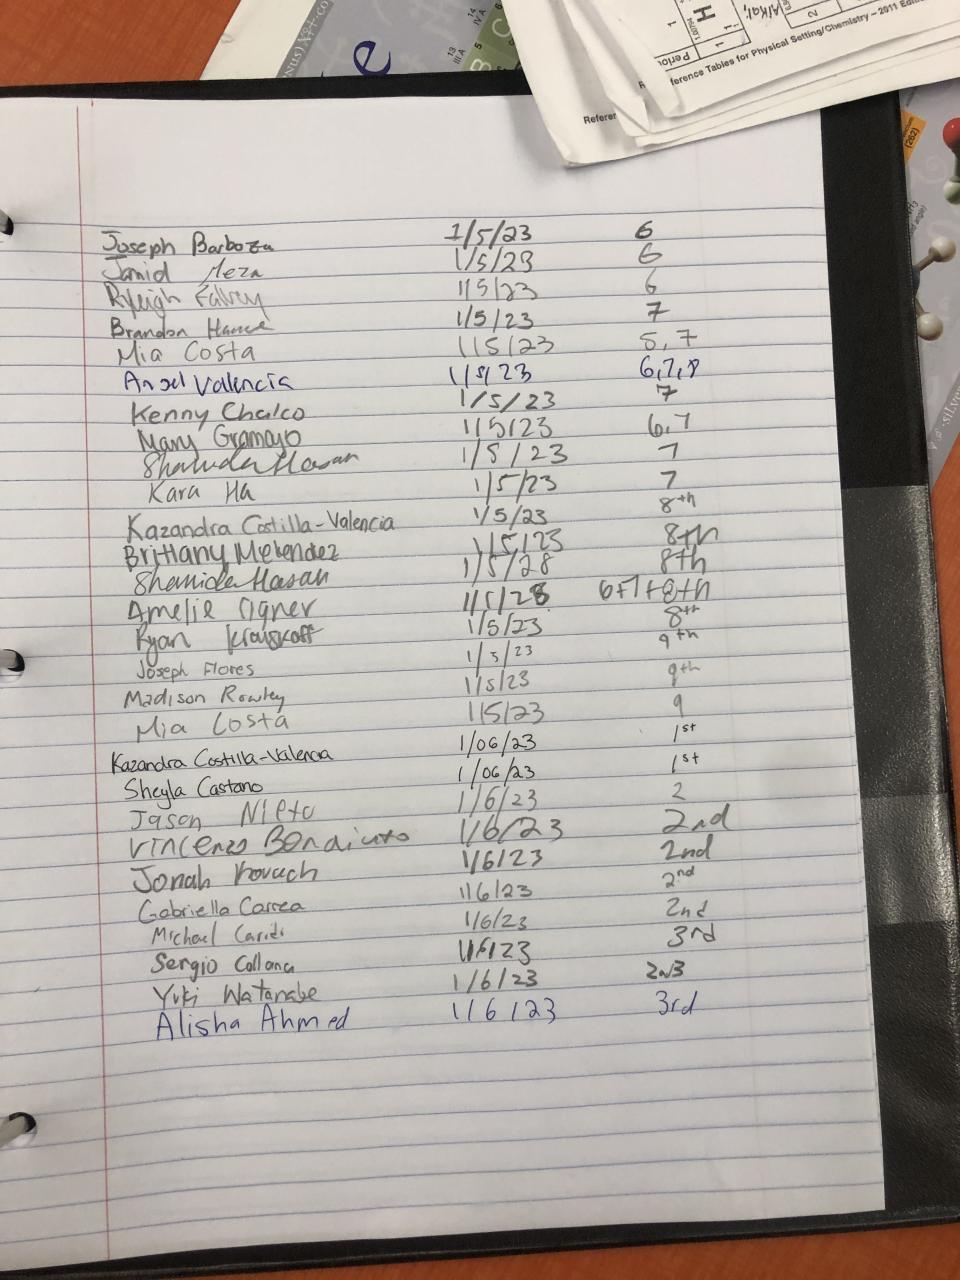 Reference Tables for Physical Setting/Chemistry – 2011 Edi
Refere
Perio
1
H
1.00794
13
IIIA
14
IVA
5
B
C
2
(262)
e
Joseph Barboza 1/5/23 6
Jamid Meza 1/5/23 6
Ryleigh Falvey 1/5/23 6
Brandon 1/5/23 7
Mia Costa 1/5/23 5,7
Angel Valencia 1/5/23 6,7,8
Kenny Chalco 1/5/23 7
Mary Gramayo 1/5/23 6,7
Shahida Hasan 1/5/23 7
Kara Ha 1/5/23 7
Kazandra Costilla-Valencia 1/5/23 8th
Brittany Melendez 1/5/23 8th
Shahida Hasan 1/5/28 8th
Amelie Cigner 1/5/28 6+7+8th
Ryan 1/5/23 8th
Joseph Flores 1/5/23 9th
Madison Rowley 1/5/23 9th
Mia Costa 1/5/23 9
Kazandra Costilla-Valencia 1/06/23 1st
Sheyla Castano 1/06/23 1st
Jason Nieto 1/6/23 2
Vincenzo 1/6/23 2nd
Jonah Kovach 1/6/23 2nd
Gabriella Correa 1/6/23 2nd
Michael Caridi 1/6/23 2nd
Sergio Collana 1/6/23 3rd
Yuki Watanabe 1/6/23
Alisha Ahmed 1/6/23 3rd